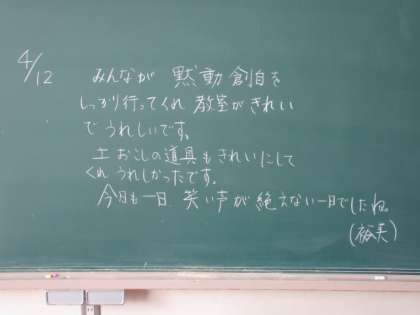 4/12
みんなが 黙動 創自を
しっかり行ってくれ 教室がきれい
で うれしいです。
土おこしの道具もきれいにして
くれ うれしかったです。
今月も一日 笑い声が 絶えない一日でしたね。
(裕美)